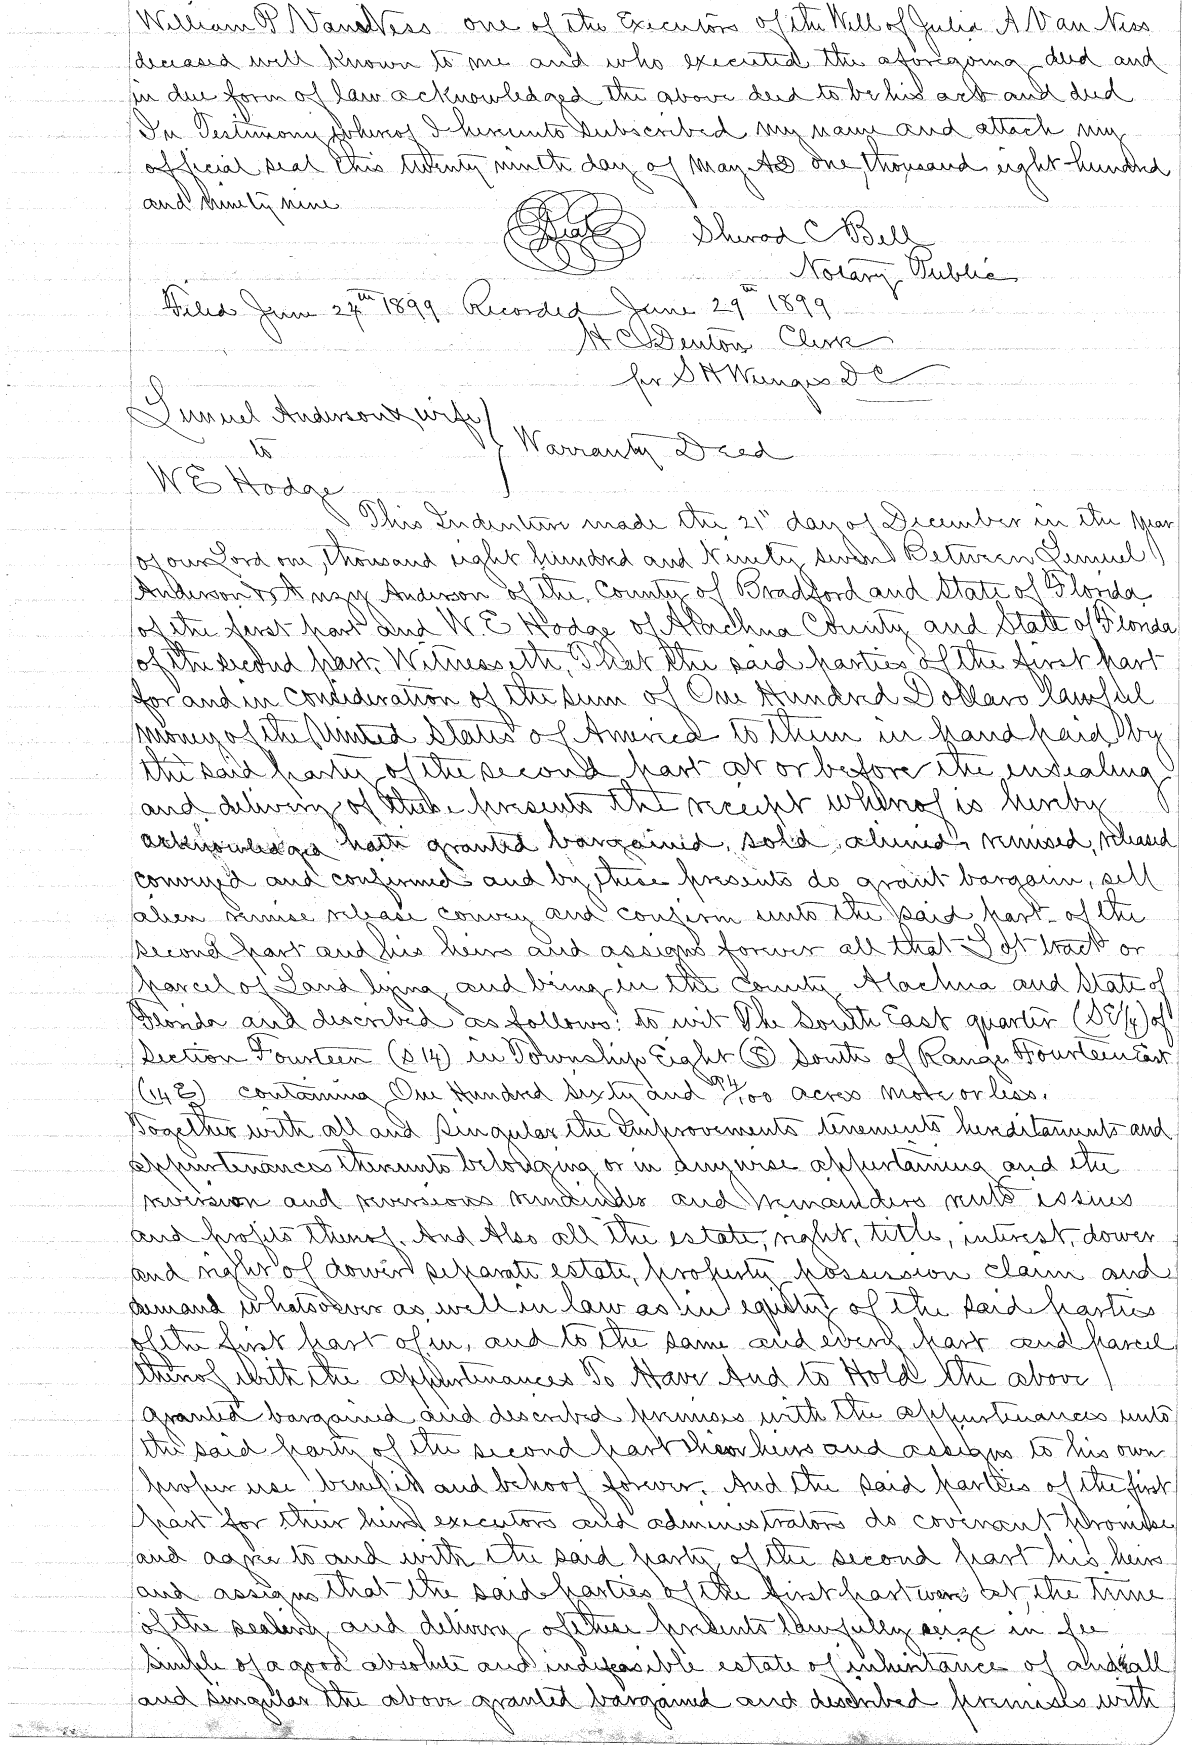 William P Van Ness one of the Executors of the Will of Julia A Van Ness
deceased well known to me and who executed the aforegoing deed and
in due form of law acknowledged the above deed to be his act and deed
In Testimony whereof I hereunto subscribed my name and attach my
official seal this twenty ninth day of May AD one thousand eight hundred
and ninety nine
Seal Sherod C Bell
Notary Public
Filed June 27th 1899 Recorded June 29th 1899
H C Denton Clerk
per S H Wienges D C
Lemuel Anderson & wife
to Warranty Deed
W E Hodge
This Indenture made the 21" day of December in the year
of our Lord one thousand eight hundred and Ninety seven Between Lemuel
Anderson & Anzy Anderson of the County of Bradford and State of Florida
of the first part and W. E Hodge of Alachua County and State of Florida
of the second part. Witnesseth, That the said parties of the first part
for and in consideration of the sum of One Hundred Dollars lawful
money of the United States of America to them in hand paid by
the said party of the second part at or before the ensealing
and delivery of these presents the receipt whereof is hereby
acknowledged hath granted bargained, sold, aliened, remised, released
conveyed and confirmed and by these presents do grant bargain, sell
alien remise release convey and confirm unto the said part of the
second part and his heirs and assigns forever all that Lot tract or
parcel of Land lying and being in the County Alachua and State of
Florida and described as follows: to wit The South East quarter (SE1/4) of
Section Fourteen (S 14) in Township Eight (8) South of Range Fourteen East
(14 E) containing One Hundred Sixty and 94/100 acres more or less.
Together with all and singular the Improvements tenements hereditaments and
appurtenances thereunto belonging or in anywise appertaining and the
reversion and reversions remainder and remainders rents issues
and profits thereof. And Also all the estate, right, title, interest, dower
and right of dower separate estate, property possession claim and
demand whatsoever as well in law as in equity of the said parties
of the first part of in, and to the same and every part and parcel
thereof with the appurtenances To Have And to Hold the above
granted bargained and described premises with the appurtenances unto
the said party of the second part heirs and assigns to his own
proper use benefit and behoof forever. And the said parties of the first
part for their heirs executors and administrators do covenant promise
and agree to and with the said party of the second part his heirs
and assigns that the said parties of the first part were at the time
of the sealing and delivery of these presents lawfully seize in fee
simple of a good absolute and indefeasible estate of inheritance of and all
and singular the above granted bargained and described premises with